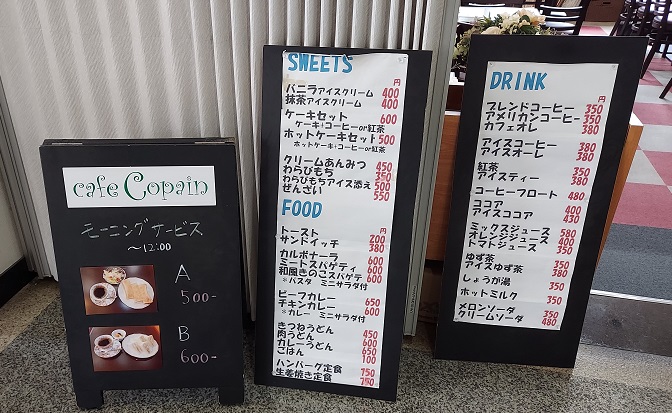 cafe Copain
モーニングサービス
～12:00
A
500-
B
600-
SWEETS
円
バニラアイスクリーム 400
抹茶アイスクリーム 400
ケーキセット 600
ケーキ+コーヒーor紅茶
ホットケーキセット 500
ホットケーキ+コーヒーor紅茶
クリームあんみつ 450
わらびもち 350
わらびもちアイス添え 500
ぜんざい 550
FOOD
円
トースト 200
サンドイッチ 380
カルボナーラ 600
ミートスパゲティ 600
和風きのこスパゲテ 600
*パスタ ミニサラダ付
ビーフカレー 650
チキンカレー 600
*カレー ミニサラダ付
きつねうどん 450
肉うどん 600
カレーうどん 650
ごはん 100
ハンバーグ定食 750
生姜焼き定食 750
DRINK
円
ブレンドコーヒー 350
アメリカンコーヒー 350
カフェオレ 380
アイスコーヒー 380
アイスオーレ 380
紅茶 350
アイスティー 380
コーヒーフロート 480
ココア 400
アイスココア 430
ミックスジュース 580
オレンジジュース 400
トマトジュース 400
ゆず茶 350
アイスゆず茶 350
しょうが湯 350
ホットミルク 350
メロンソーダ 350
クリームソーダ 480